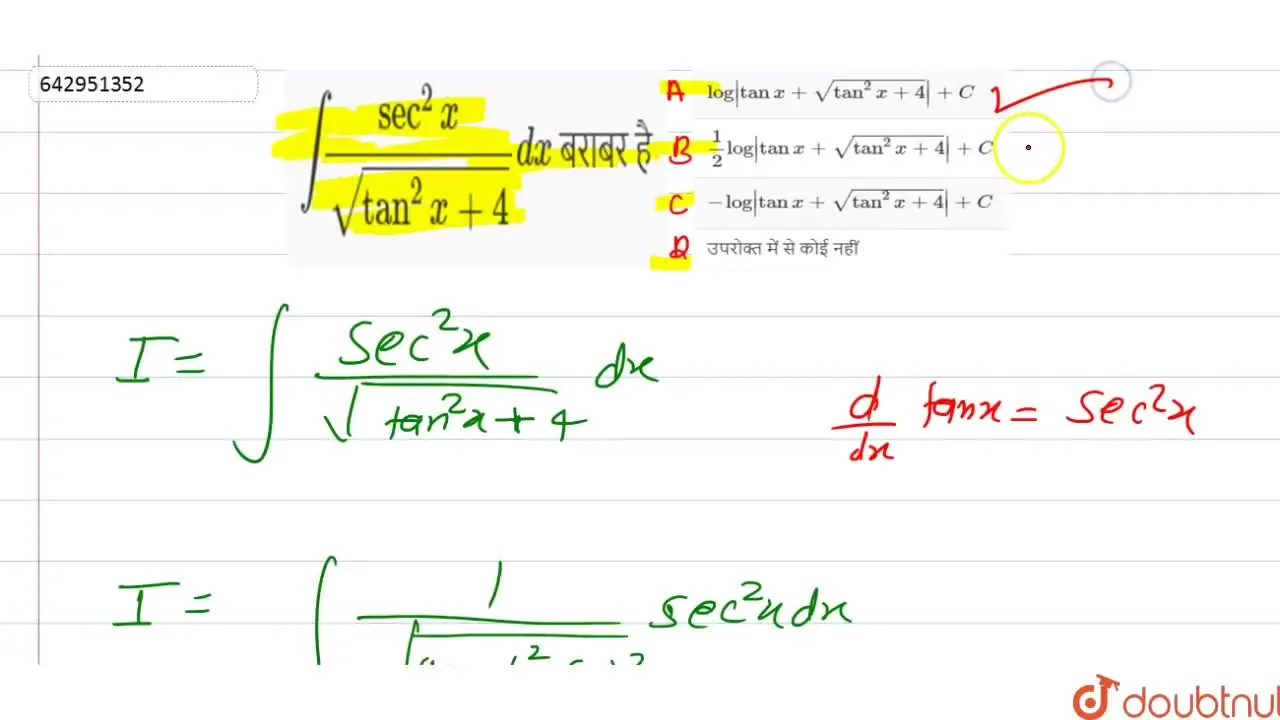 642951352
∫ sec² x / √(tan² x + 4) dx बराबर है
A log|tan x + √(tan² x + 4)| + C
B 1/2 log|tan x + √(tan² x + 4)| + C
C − log|tan x + √(tan² x + 4)| + C
D उपरोक्त में से कोई नहीं
I = ∫ sec²x / √(tan²x + 4) dx
d/dx tanx = sec²x
I = ∫ 1 / √ sec²x dx
doubtnut